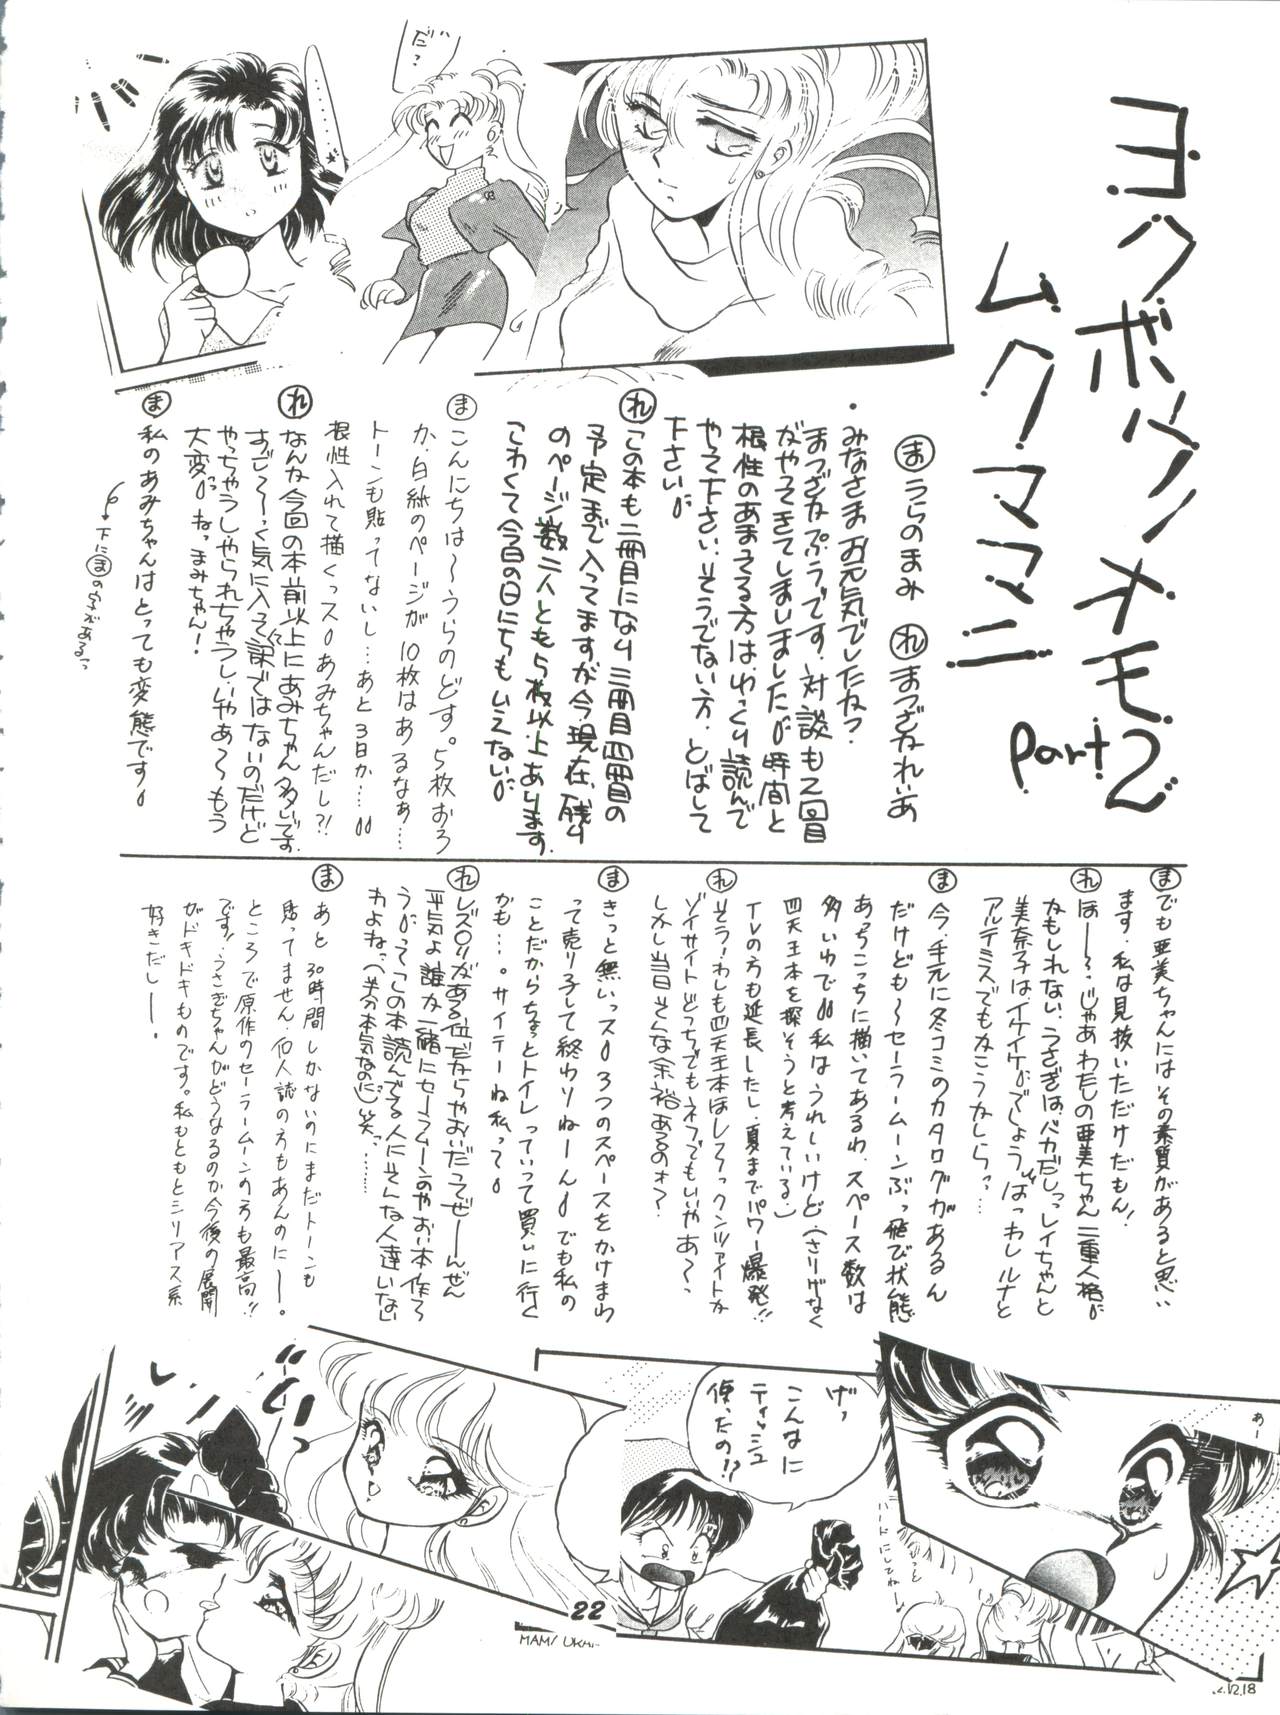 ヨクボウノメモ
ムクママニ
part 2
だ？
まうらのまみ　れまつざかれいあ
・みなさまお元気でしたね？
まつざかぷらです。対談も2回目
がやってきてしまいました。時間と
根性のあまってる方は、ゆっくり読んで
やって下さい。そうでない方、とばして
下さい。
れこの本も二冊目になり三冊目四冊目の
予定まで入ってますが今現在、残り
のページ数二人とも5枚以上あります。
こわくて今日の日にちもいえない。
まこんにちは～うらのどす。5枚おろ
か、白紙のページが10枚はあるなぁ…
トーンも貼ってないし…あと3日か…
根性入れて描くっス。あみちゃんだし?!
れなんか今回の本前以上にあみちゃん多いです。
すご～～く気に入って訳ではないのだけど
やっちゃうしやられちゃうし、いやぁ～もう
大変。ねっまみちゃん！
ま私のあみちゃんはとっても変態です。
下にまの字がある
までも亜美ちゃんにはその素質があると思い
ます。私は見抜いただけだもん！
れほー～。じゃあわたしの亜美ちゃん二重人格
かもしれない。うさぎは、バカだしっレイちゃんと
美奈子はイケイケでしょう。ばっわしルナと
アルテミスでもかこうかしらっ…
ま今、手元に冬コミのカタログがあるん
だけども～セーラームーンぶっ飛び状態
あっちこっちに描いてあるわ、スペース数は
多いわで私はうれしいけど。（さりげなく
四天王本を探そうと考えている。）
TVの方も延長したし、夏までパワー爆発!!
れそう！わしも四天王本ほしくってクンツァイトか
ゾイサイトどっちでもネフでもいいやぁ～～
しかし当日そんな余裕あるのォ？
まきっと無いっス。3つのスペースをかけまわ
って売り子して終わりねーん。でも私の
ことだからちょっとトイレっていって買いに行く
かも…。サイテーね私って。
れレズ〇リがある位だからやおいだってぜーんぜん
平気よ誰か一緒にセーラームーンのやおい本作ろ
うってこの本読んでる人にそんな人達いない
わよねっ（半分本気なのに）笑っ………
まあと30時間しかないのにまだトーンも
貼ってません、個人誌の方もあんのにー。
ところで原作のセーラームーンの方も最高!!
です!!うさぎちゃんがどうなるのか今後の展開
がドキドキものです。私もともとシリアス系
好きだしー。
げっ
こんなに
ティッシュ
使ったの!?
あー
もっと
ハードにしてね
22
MAMI URA
2.12.18